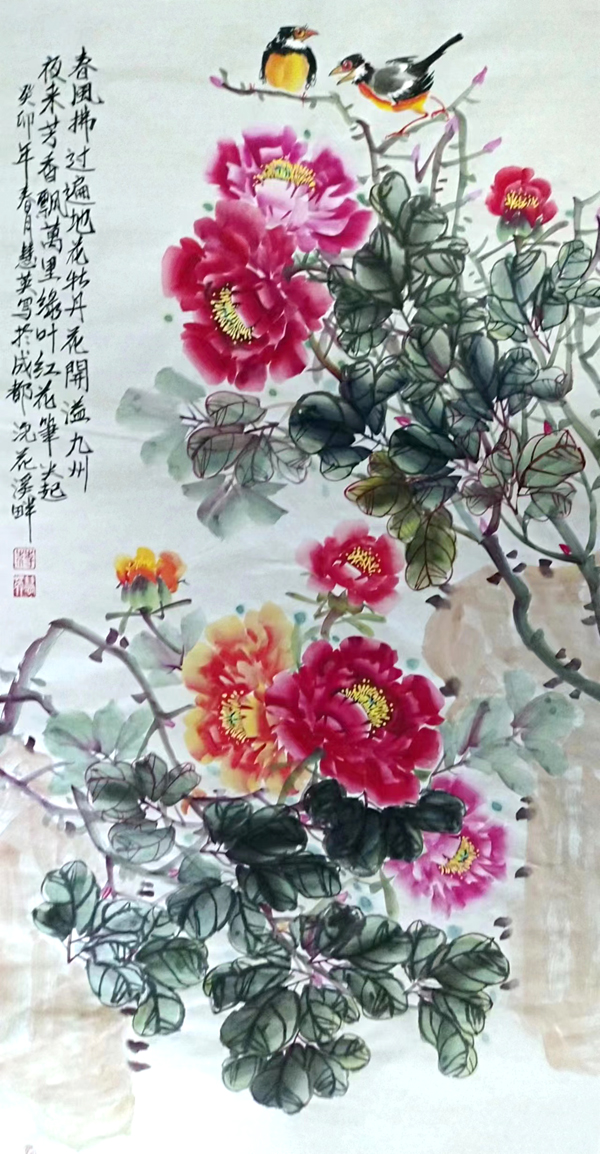 春風拂过遍地花牡丹花開溢九州
夜来芳香飄萬里绿叶红花筆尖起
癸卯年春月慧英写於成都浣花溪畔